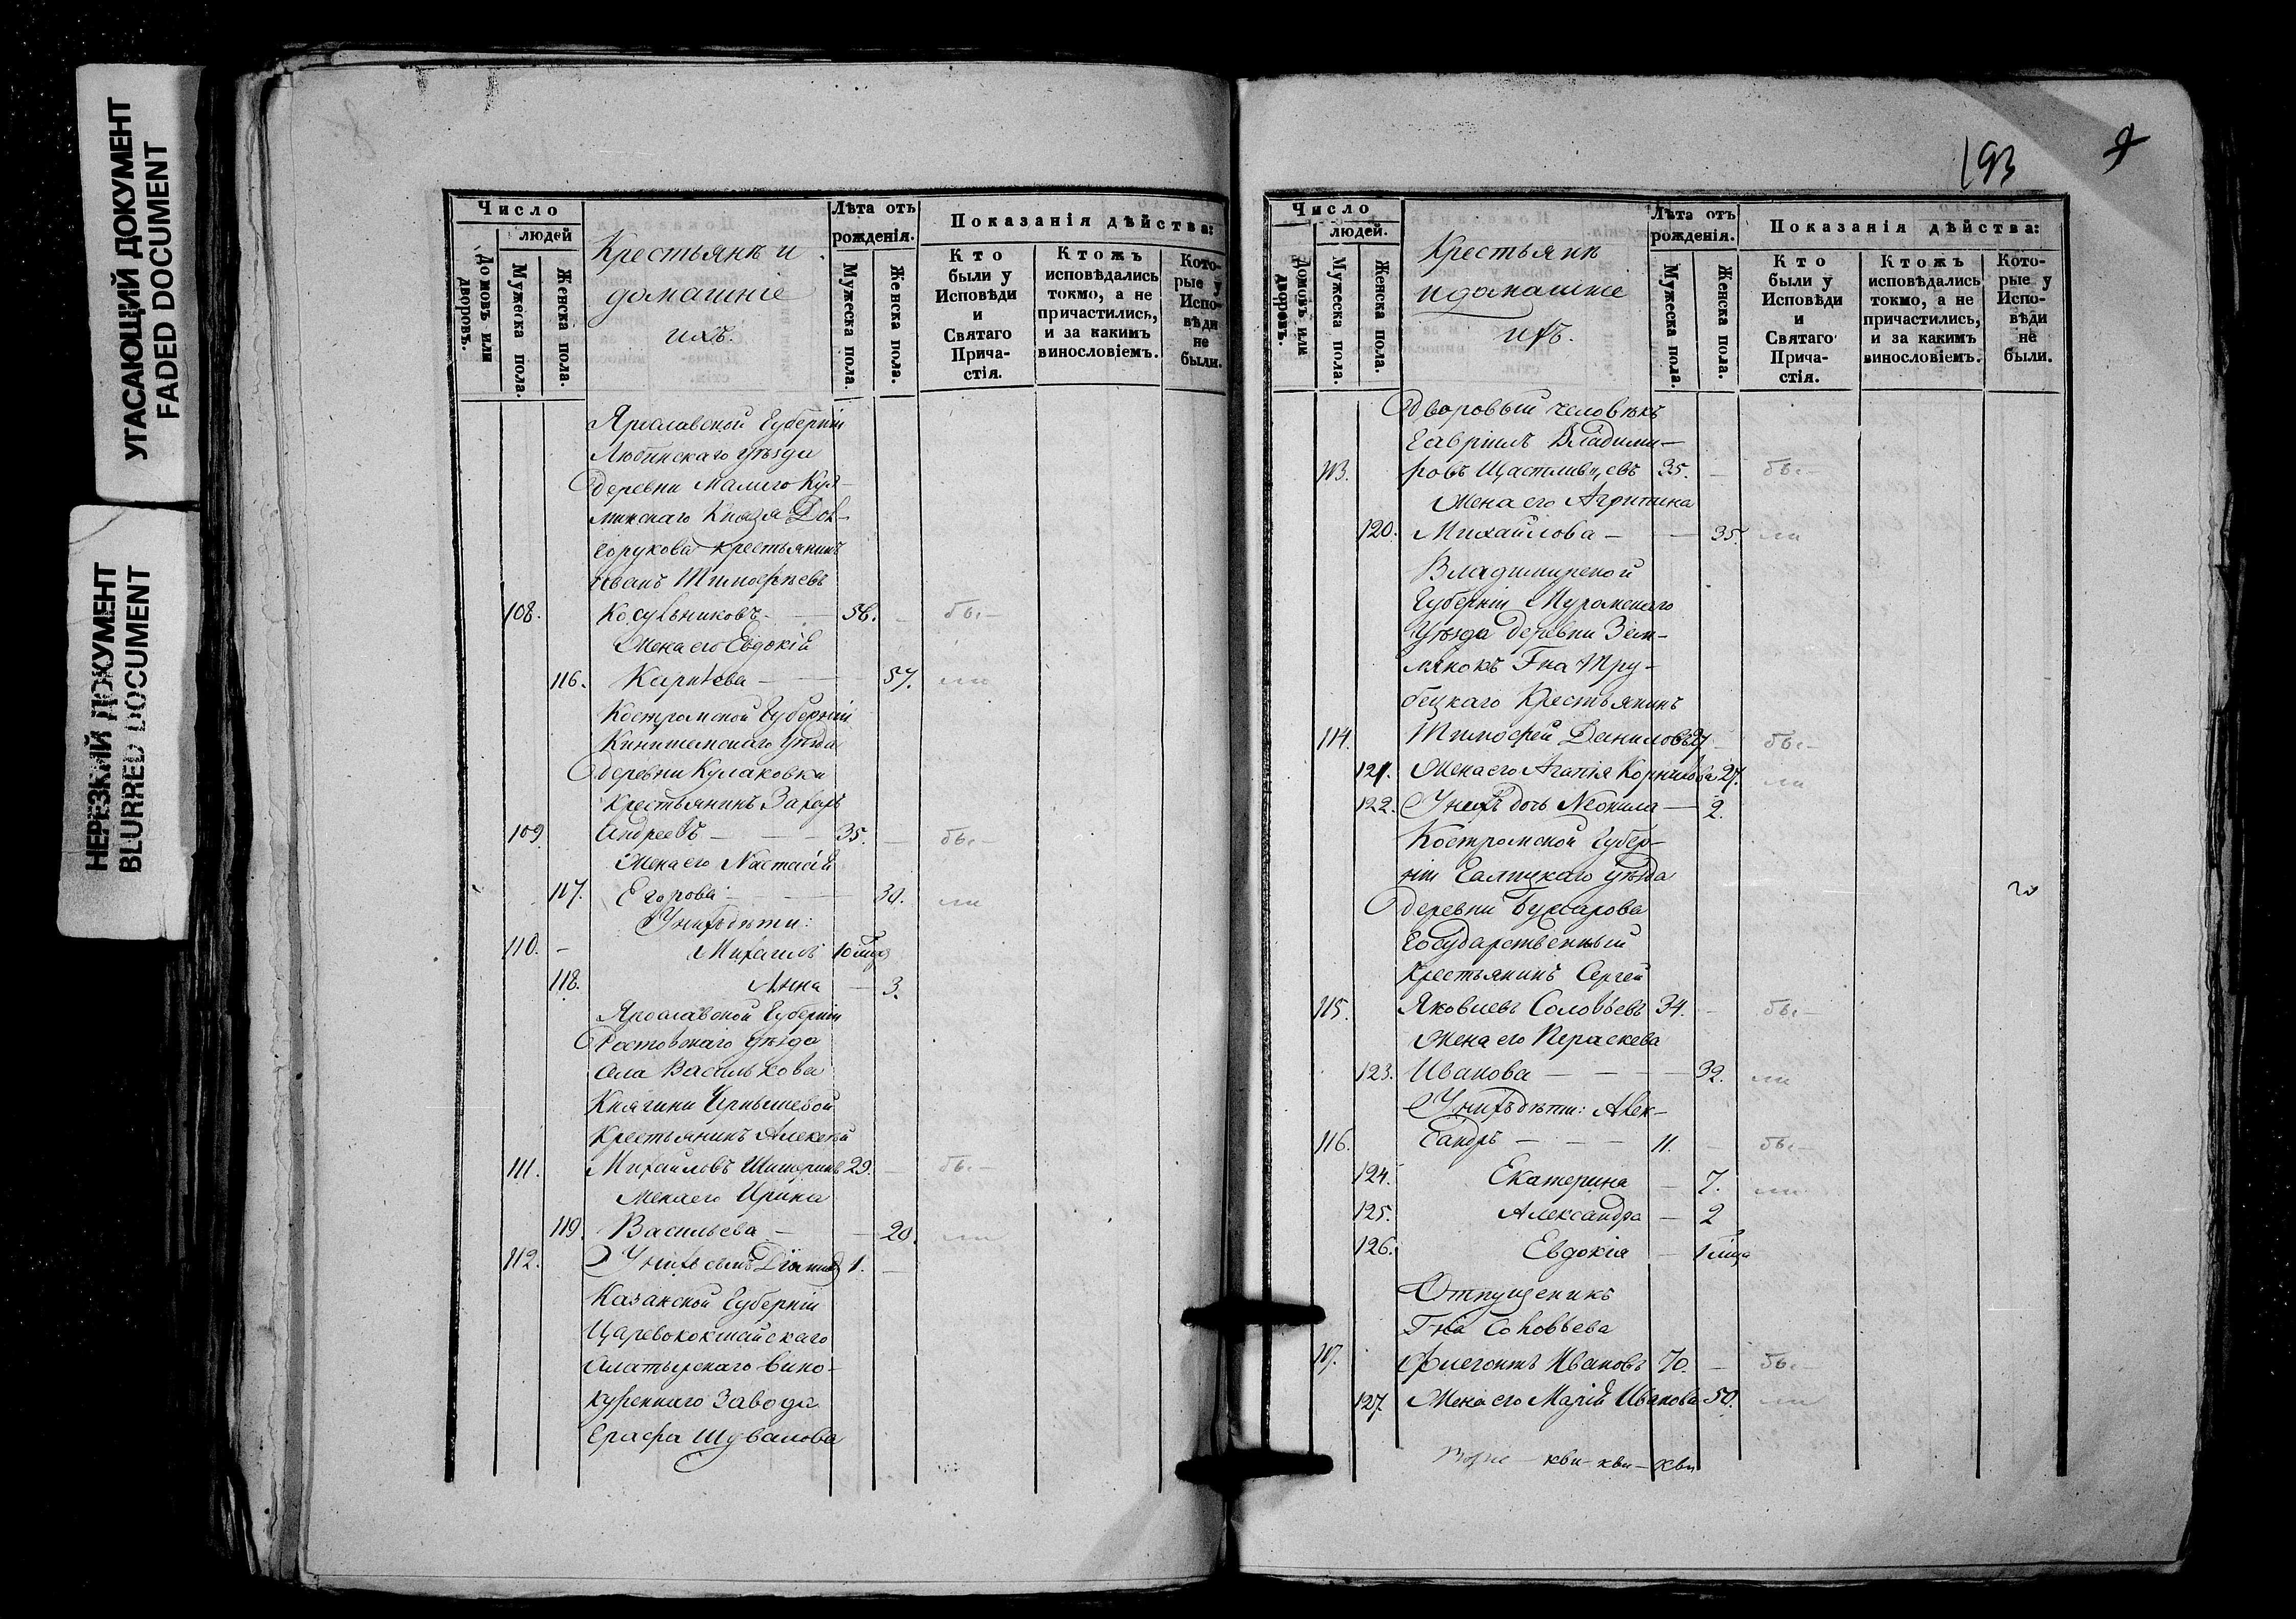 УГАСАЮЩИЙ ДОКУМЕНТ
FADED DOCUMENT
НЕРЕЗКИЙ ДОКУМЕНТ
BLURRED DOCUMENT
Число
людей
Домовъ или дворовъ.
Мужеска пола.
Женска пола.
Крестьянъ и
домашніе
ихъ.
Лѣта отъ
рожденія.
Мужеска пола.
Женска пола.
Показанія дѣйства:
Кто
были у
Исповѣди
и
Святаго
Прича-
стія.
Ктожъ
исповѣдались
токмо, а не
причастились,
и за какимъ
винословіемъ.
Кото-
рые у
Испо-
вѣди
не
были.
Ярославской Губерніи
Любимскаго уѣзда
деревни Малаго
Князя Дол-
горукова крестьянинъ
Иванъ Тимофѣевъ
108. Косульниковъ 58. бы-
Жена его Евдокія
116. Карпѣева 57. ли
Костромской Губерніи
Кинешемскаго уѣзда
деревни Кулаковки
Крестьянинъ Захаръ
109. Андреевъ 35. бы-
Жена его Настасія
117. Егорова 30. ли
У нихъ дѣти:
110. Михаилъ
118. Анна 3.
Ярославской Губерніи
Ростовскаго уѣзда
села Василькова
Княгини Чернышевой
Крестьянинъ Алексѣй
111. Михайловъ 29. бы-
Жена его Ирина
119. Васильева 20. ли
112. У нихъ сынъ 1.
Казанской Губерніи
Царевококшайскаго
Алатырскаго вино-
куреннаго Завода
Графа Шувалова
193
9
Число
людей.
Домовъ или дворовъ.
Мужеска пола.
Женска пола.
Крестьянъ
и домашніе
ихъ.
Лѣта отъ
рожденія.
Мужеска пола.
Женска пола.
Показанія дѣйства:
Кто
были у
Исповѣди
и
Святаго
Прича-
стія.
Ктожъ
исповѣдались
токмо, а не
причастились,
и за какимъ
винословіемъ.
Кото-
рые у
Испо-
вѣди
не
были.
дворовый человѣкъ
Гавріилъ Владими-
113. ровъ Щастливцевъ 35. бы-
Жена его Агрипина
120. Михайлова 35. ли
Владимирской
Губерніи Муромскаго
Уѣзда деревни Зем-
лянокъ Г-на Тру-
бецкаго Крестьянинъ
114. Тимофей Даниловъ 27 бы-
121. Жена его Агапія Корнилова 27. ли
122. У нихъ дочь Неонила 2.
Костромской Губер-
ніи Галицкаго уѣзда
деревни Бухарова
Государственный
Крестьянинъ Сергей
115. Яковлевъ Соловьевъ 34. бы-
Жена его Параскева
123. Иванова 32. ли
У нихъ дѣти: Алек-
116. сандръ 11. бы-
124. Екатерина 7. ли
125. Александра 2
126. Евдокія
Отпущеникъ
Г-на Соловьева
117. Флегонтъ Ивановъ 70. бы-
127. Жена его Марія Иванова 50. ли